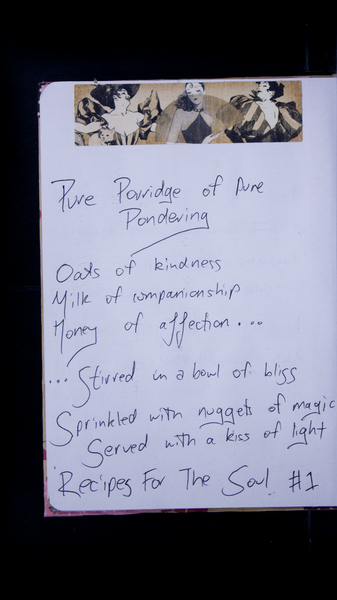 Pure Porridge of Pure
Pondering
Oats of kindness
Milk of companionship
Honey of affection....
... Stirred in a bowl of bliss
Sprinkled with nuggets of magic
Served with a kiss of light
Recipes For The Soul #1